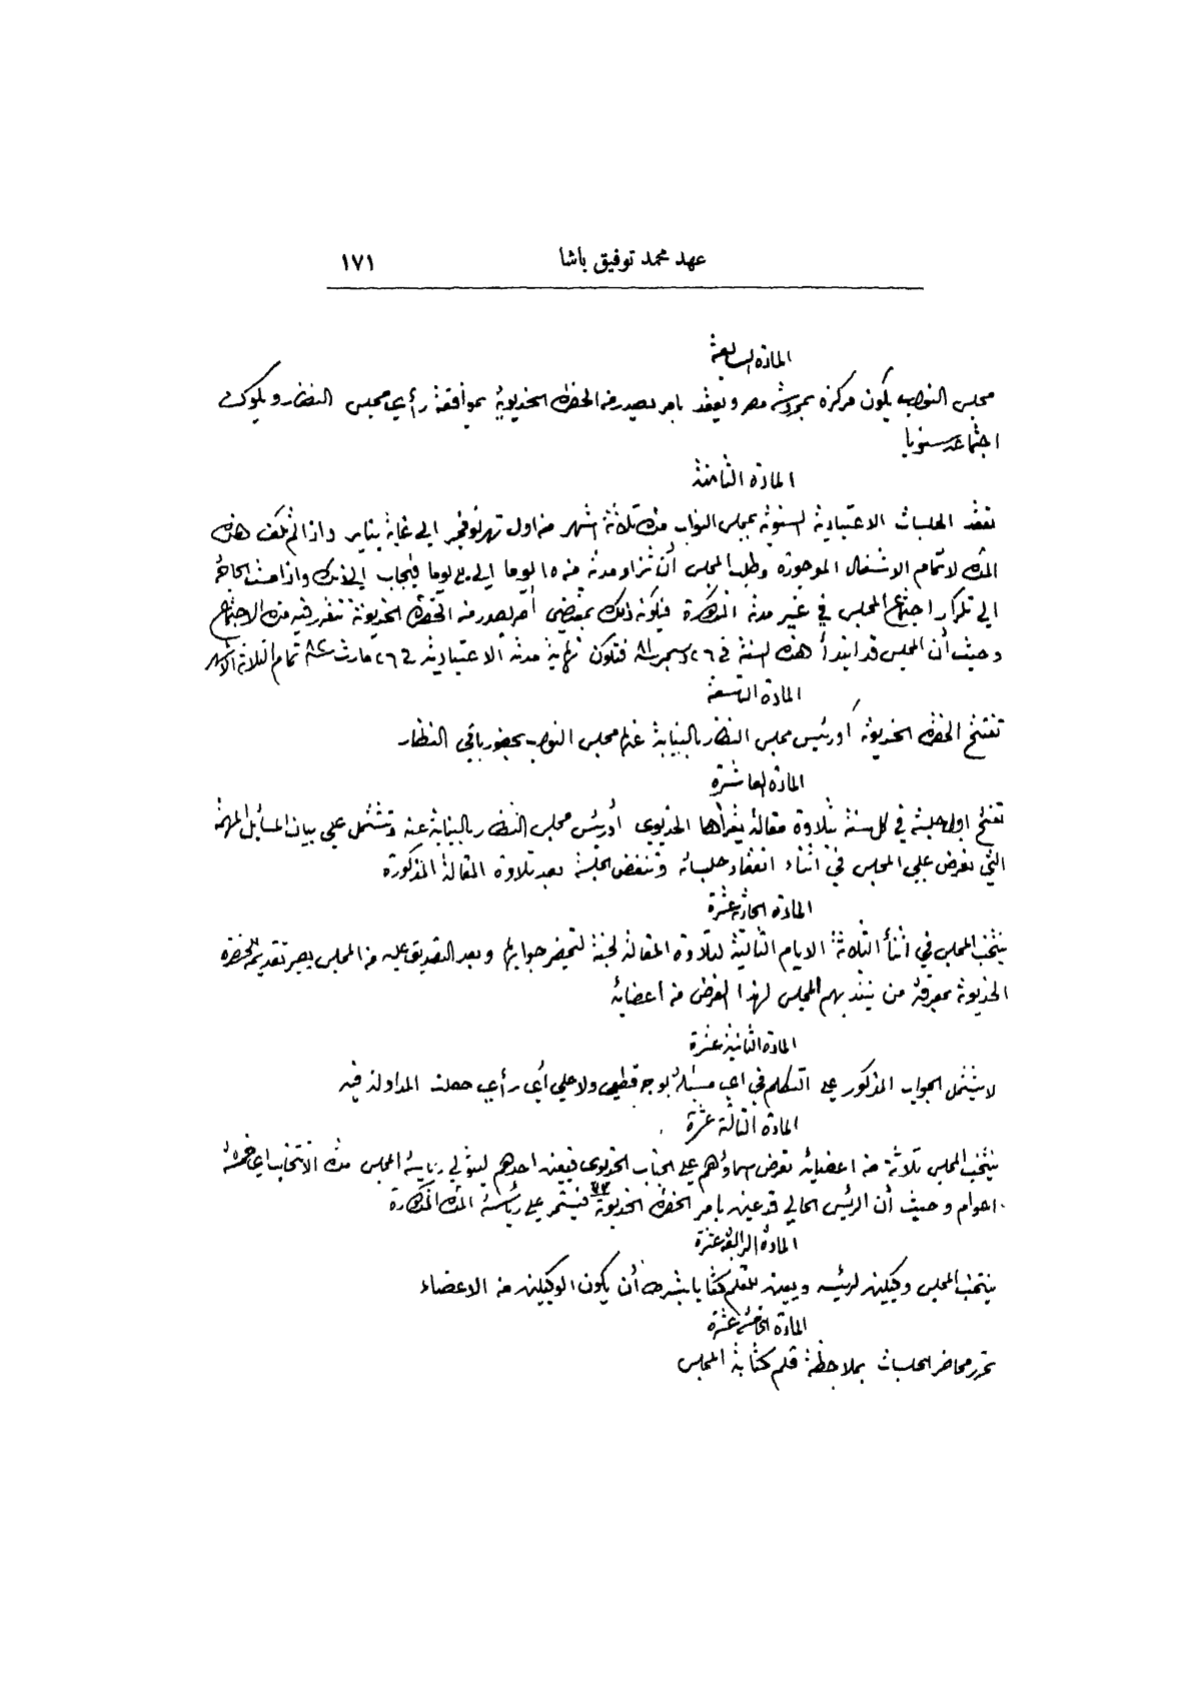 عهد محمد توفيق باشا ١٧١
المادة السابعة
مجلس النواب يكون مركزه بمحروسة مصر ويعقد بامر يصدر من الحضرة الخديوية بموافقة رأي مجلس النظار ويكون
اجتماعه سنويا
المادة الثامنة
تعقد الجلسات الاعتيادية السنوية بمجلس النواب مدة ثلاثة اشهر من اول شهر نوفمبر الى غاية يناير واذا لم تكف هذه
المدة لاتمام الاشغال الموجودة وطلب المجلس أن تزاد مدته من ١٥ يوما الى ٣٠ يوما فيجاب الى ذلك واذا مست الحاجة
الى تكرار اجتماع المجلس في غير مدته المذكورة فيكون ذلك بمقتضى أمر يصدر من الحضرة الخديوية تتقرر فيه مدة الاجتماع
وحيث أن المجلس قد ابتدأ هذه السنة في ٢٦ دسمبر سنة ٨١ فتكون نهاية مدته الاعتيادية في ٢٦ مارث سنة ٨٢ تمام الثلاثة اشهر
المادة التاسعة
تفتتح الحضرة الخديوية أو رئيس مجلس النظار بالنيابة عنها مجلس النواب بحضور باقي النظار
المادة العاشرة
تفتتح اول جلسة في كل سنة بتلاوة مقالة يقرأها الخديوي أو رئيس مجلس النظار بالنيابة عنه وتشتمل على بيان المسائل المهمة
التي تعرض على المجلس في اثناء انعقاد جلساته وتنفض الجلسة بعد تلاوة المقالة المذكورة
المادة الحادية عشرة
ينتخب المجلس في اثنأ الثلاثة الايام التالية لتلاوة المقالة لجنة لتحضير جوابها وبعد التصديق عليه من المجلس يصير تقديمه للحضرة
الخديوية بمعرفة من ينتدبهم المجلس لهذا الغرض من اعضائه
المادة الثانية عشرة
لا يشتمل الجواب المذكور على التكلم في اي مسئلة بوجه قطعي ولا على أي رأي حصلت المداولة فيه
المادة الثالثة عشرة
ينتخب المجلس ثلاثة من اعضائه تعرض اسماؤهم على الجناب الخديوي فيعين احدهم ليتولى رياسة المجلس مدة الانتخاب اي خمسة
اعوام وحيث أن الرئيس الحالي قد عين بامر الحضرة الخديوية فيستمر على رئاسة المدة المذكورة
المادة الرابعة عشرة
ينتخب المجلس وكيلين لرئيسه ويعين للقلم كتابا بشرط أن يكون الوكيلين من الاعضاء
المادة الخامسة عشرة
تحرر محاضر الجلسات بملاحظة قلم كتابة المجلس